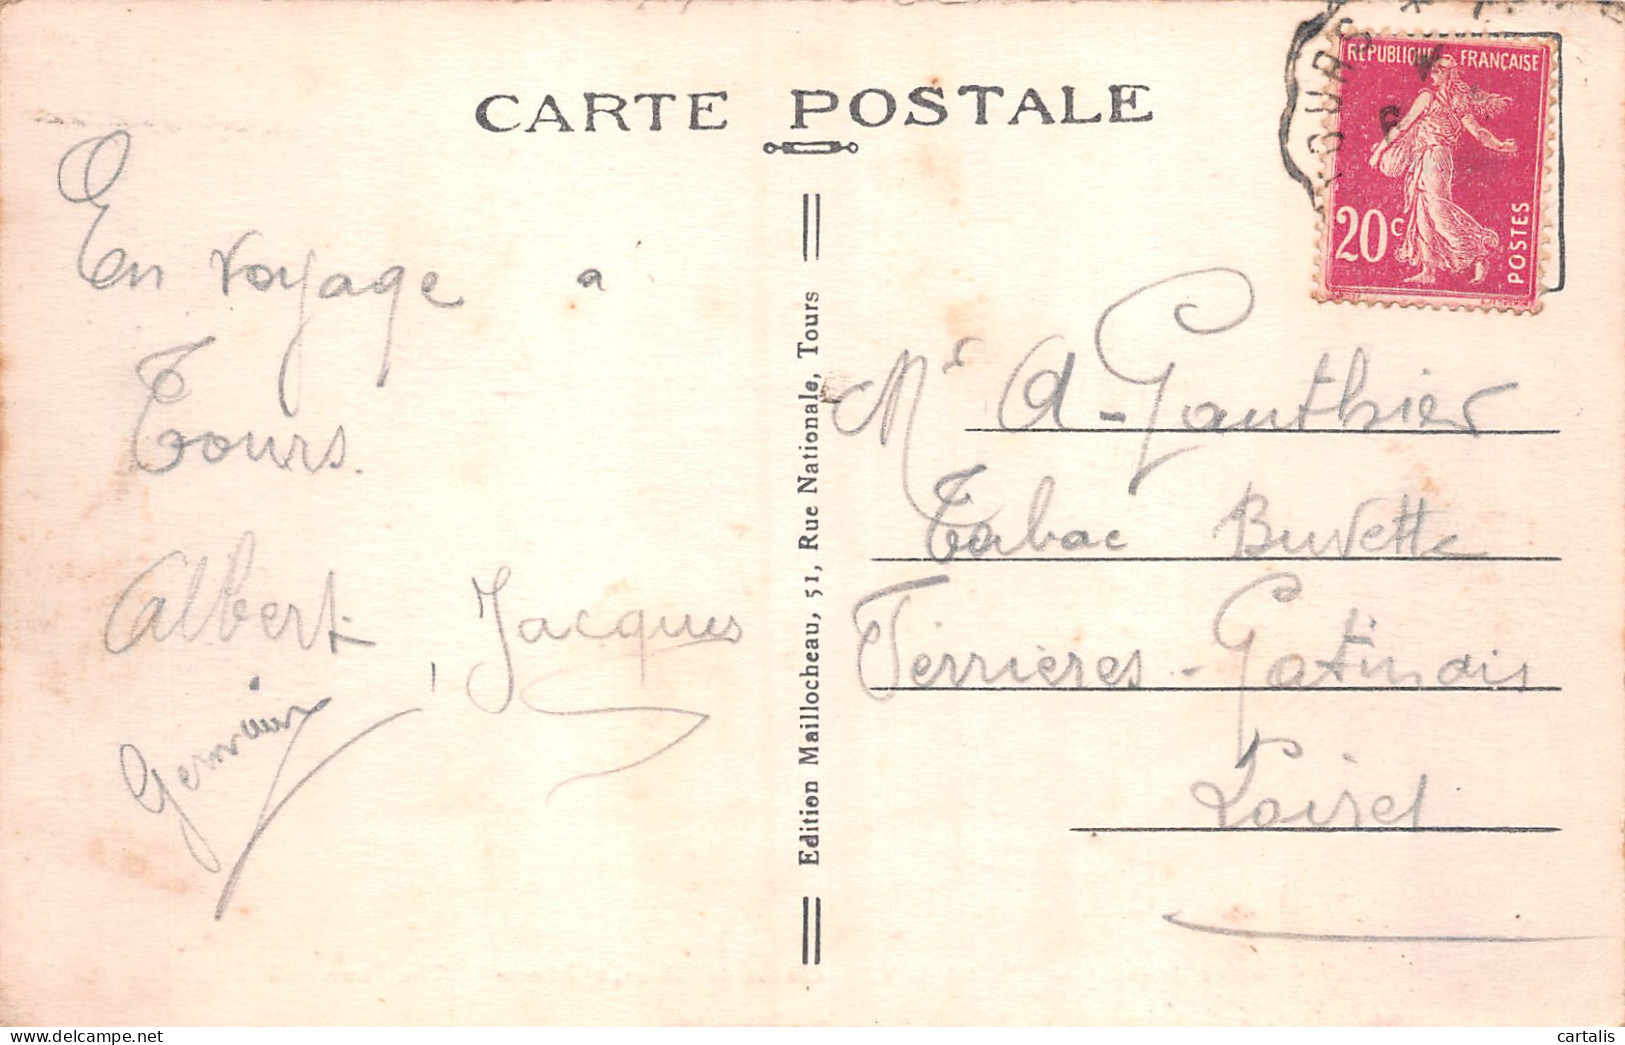 CARTE POSTALE
En voyage a
Tours.
Albert, Jacques
Germain
Edition Maillocheau, 51, Rue Nationale, Tours
TOURS
REPUBLIQUE FRANÇAISE
20c
POSTES
Mr A-Gauthier
Tabac Buvette
Ferrières-Gatinais
Loiret
cartalis